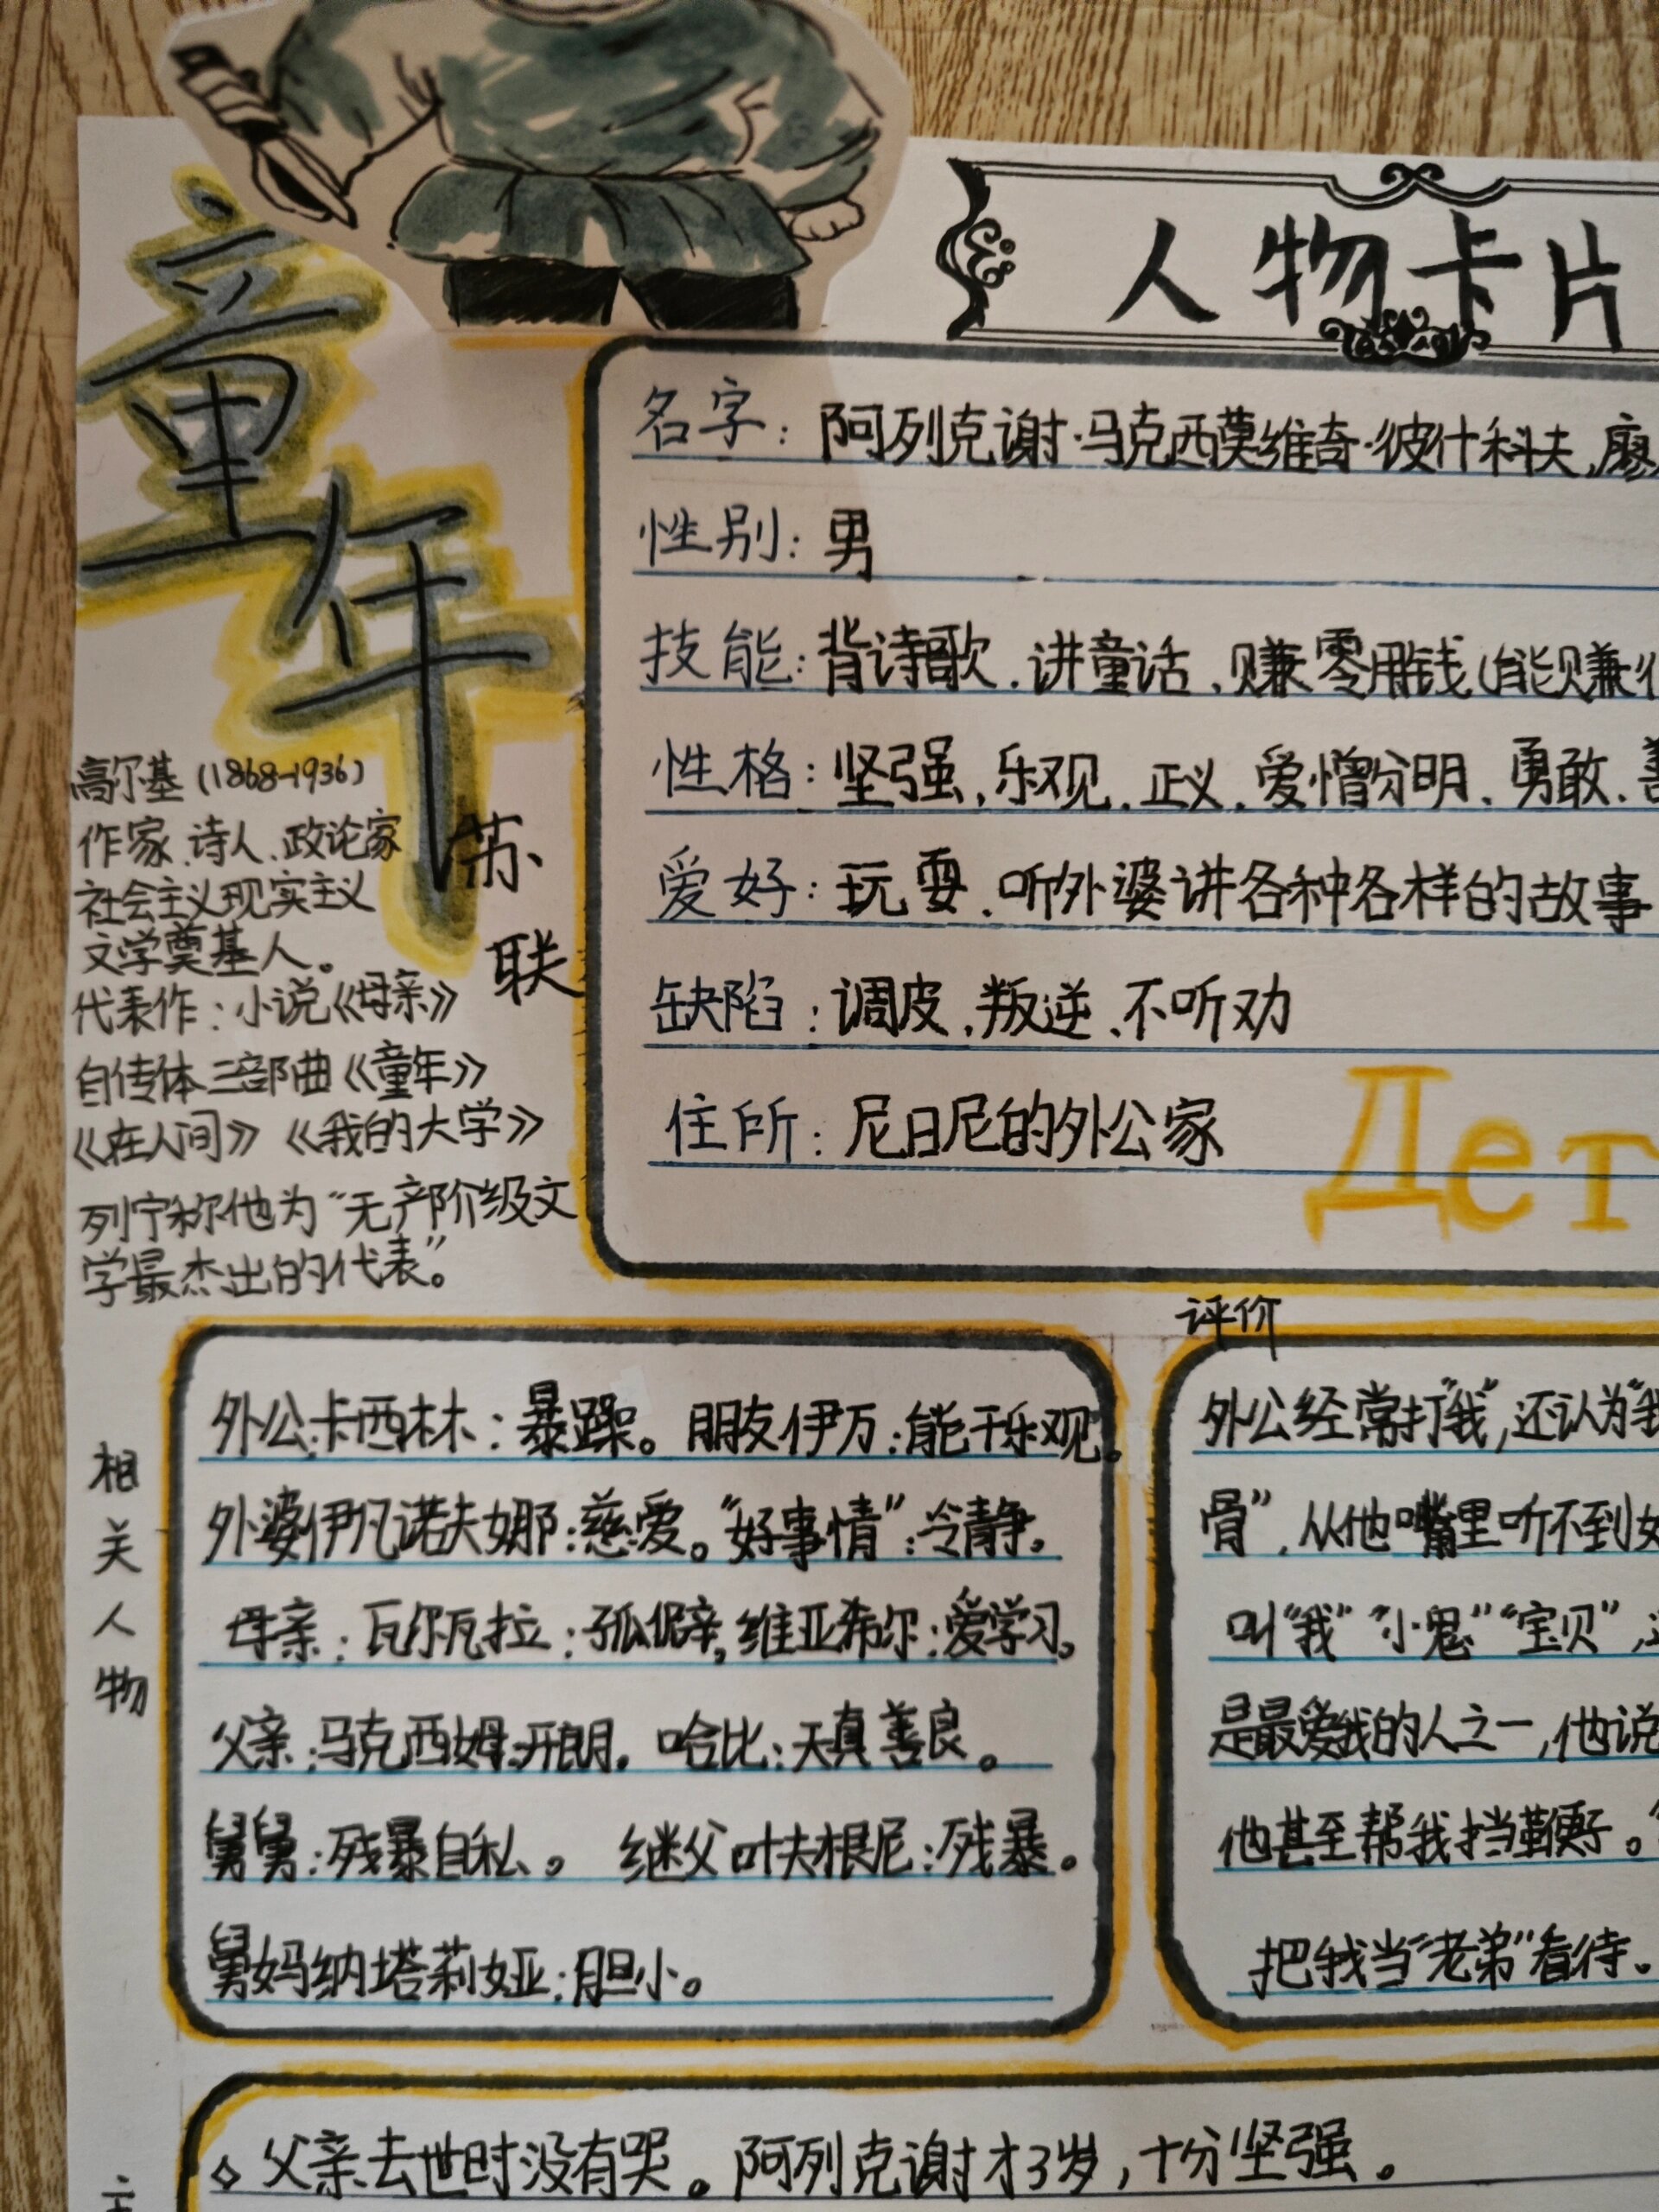 童年
苏联
高尔基(1868-1936)
作家、诗人、政论家
社会主义现实主义
文学奠基人。
代表作：小说《母亲》
自传体三部曲《童年》
《在人间》《我的大学》
列宁称他为“无产阶级文
学最杰出的代表”。
人物卡片
名字：阿列克谢·马克西莫维奇·彼什科夫,廖
性别：男
技能：背诗歌、讲童话、赚零用钱(能赚
性格：坚强、乐观、正义、爱憎分明、勇敢、善
爱好：玩耍、听外婆讲各种各样的故事
缺陷：调皮、叛逆、不听劝
住所：尼日尼的外公家
Дет
相关人物
外公:卡西林：暴躁。朋友伊万：能干乐观。
外婆伊凡诺夫娜：慈爱。“好事情”：冷静。
母亲：瓦尔瓦拉：孤僻,维亚希尔：爱学习。
父亲：马克西姆:开朗。哈比：天真善良。
舅舅：残暴自私。继父叶夫根尼：残暴。
舅妈纳塔莉娅：胆小。
评价
外公经常打“我”,还认为“我
骨”,从他嘴里听不到好
叫“我”“小鬼”“宝贝”,
是最爱我的人之一,他说
他甚至帮我挡鞭子。
把我当“老弟”看待。
◇父亲去世时没有哭。阿列克谢才3岁,十分坚强。